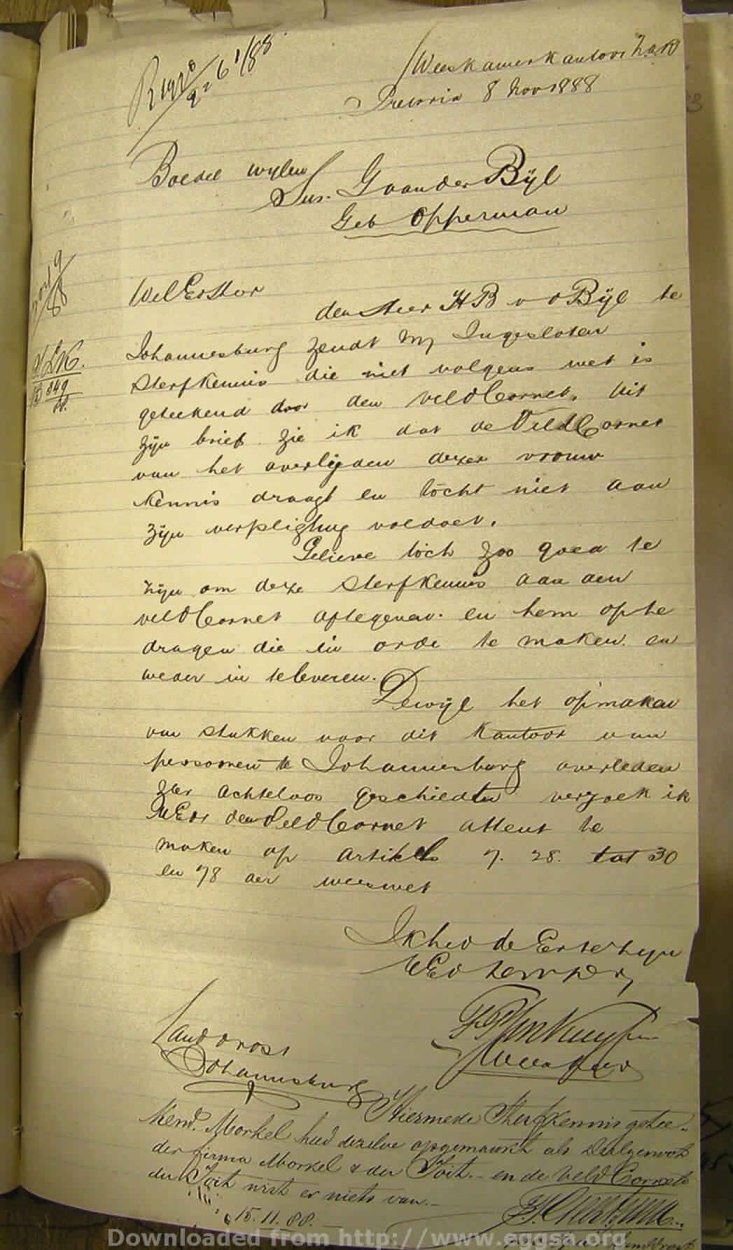 R 1920/88
Weeskamerkantoor Z.A.R
Pretoria 8 Nov 1888
Boedel wylen
Sus. G van der Bÿl
Geb Opperman
WelEdHeer
den Heer HB v d Bÿl te
Johannesburg zendt mÿ Ingesloten
Sterfkennis die niet volgens wet is
geteekend door den VeldCornet. Uit
zÿn brief zie ik dat de VeldCornet
van het overlÿden dezer vrouw
kennis draagt en tocht niet aan
zÿn verpligting voldoet.
Gelieve toch zoo goed te
zÿn om deze Sterfkennis aan den
veldCornet aftegeven. en hem opte
dragen die in orde te maken. en
weder in televeren.
Dewÿl het opmaken
van stukken voor dit Kantoor van
personen te Johannesburg overleden
zeer achteloos geschieden verzoek ik
UEdr den VeldCornet attent te
maken op artikels 7. 28. tot 30
en 78 der weeswet
Ik heb de Eer te zyn
UEd
Weesheer
Landdrost
Johannesburg
Hiermede Sterfkennis getee-
kend. Morkel had dezelve opgemaakt als
der firma Morkel & du Toit - en de Veld Cornet
du Toit wist er niets van. -
15.11.88. -
Downloaded from http://www.eggsa.org